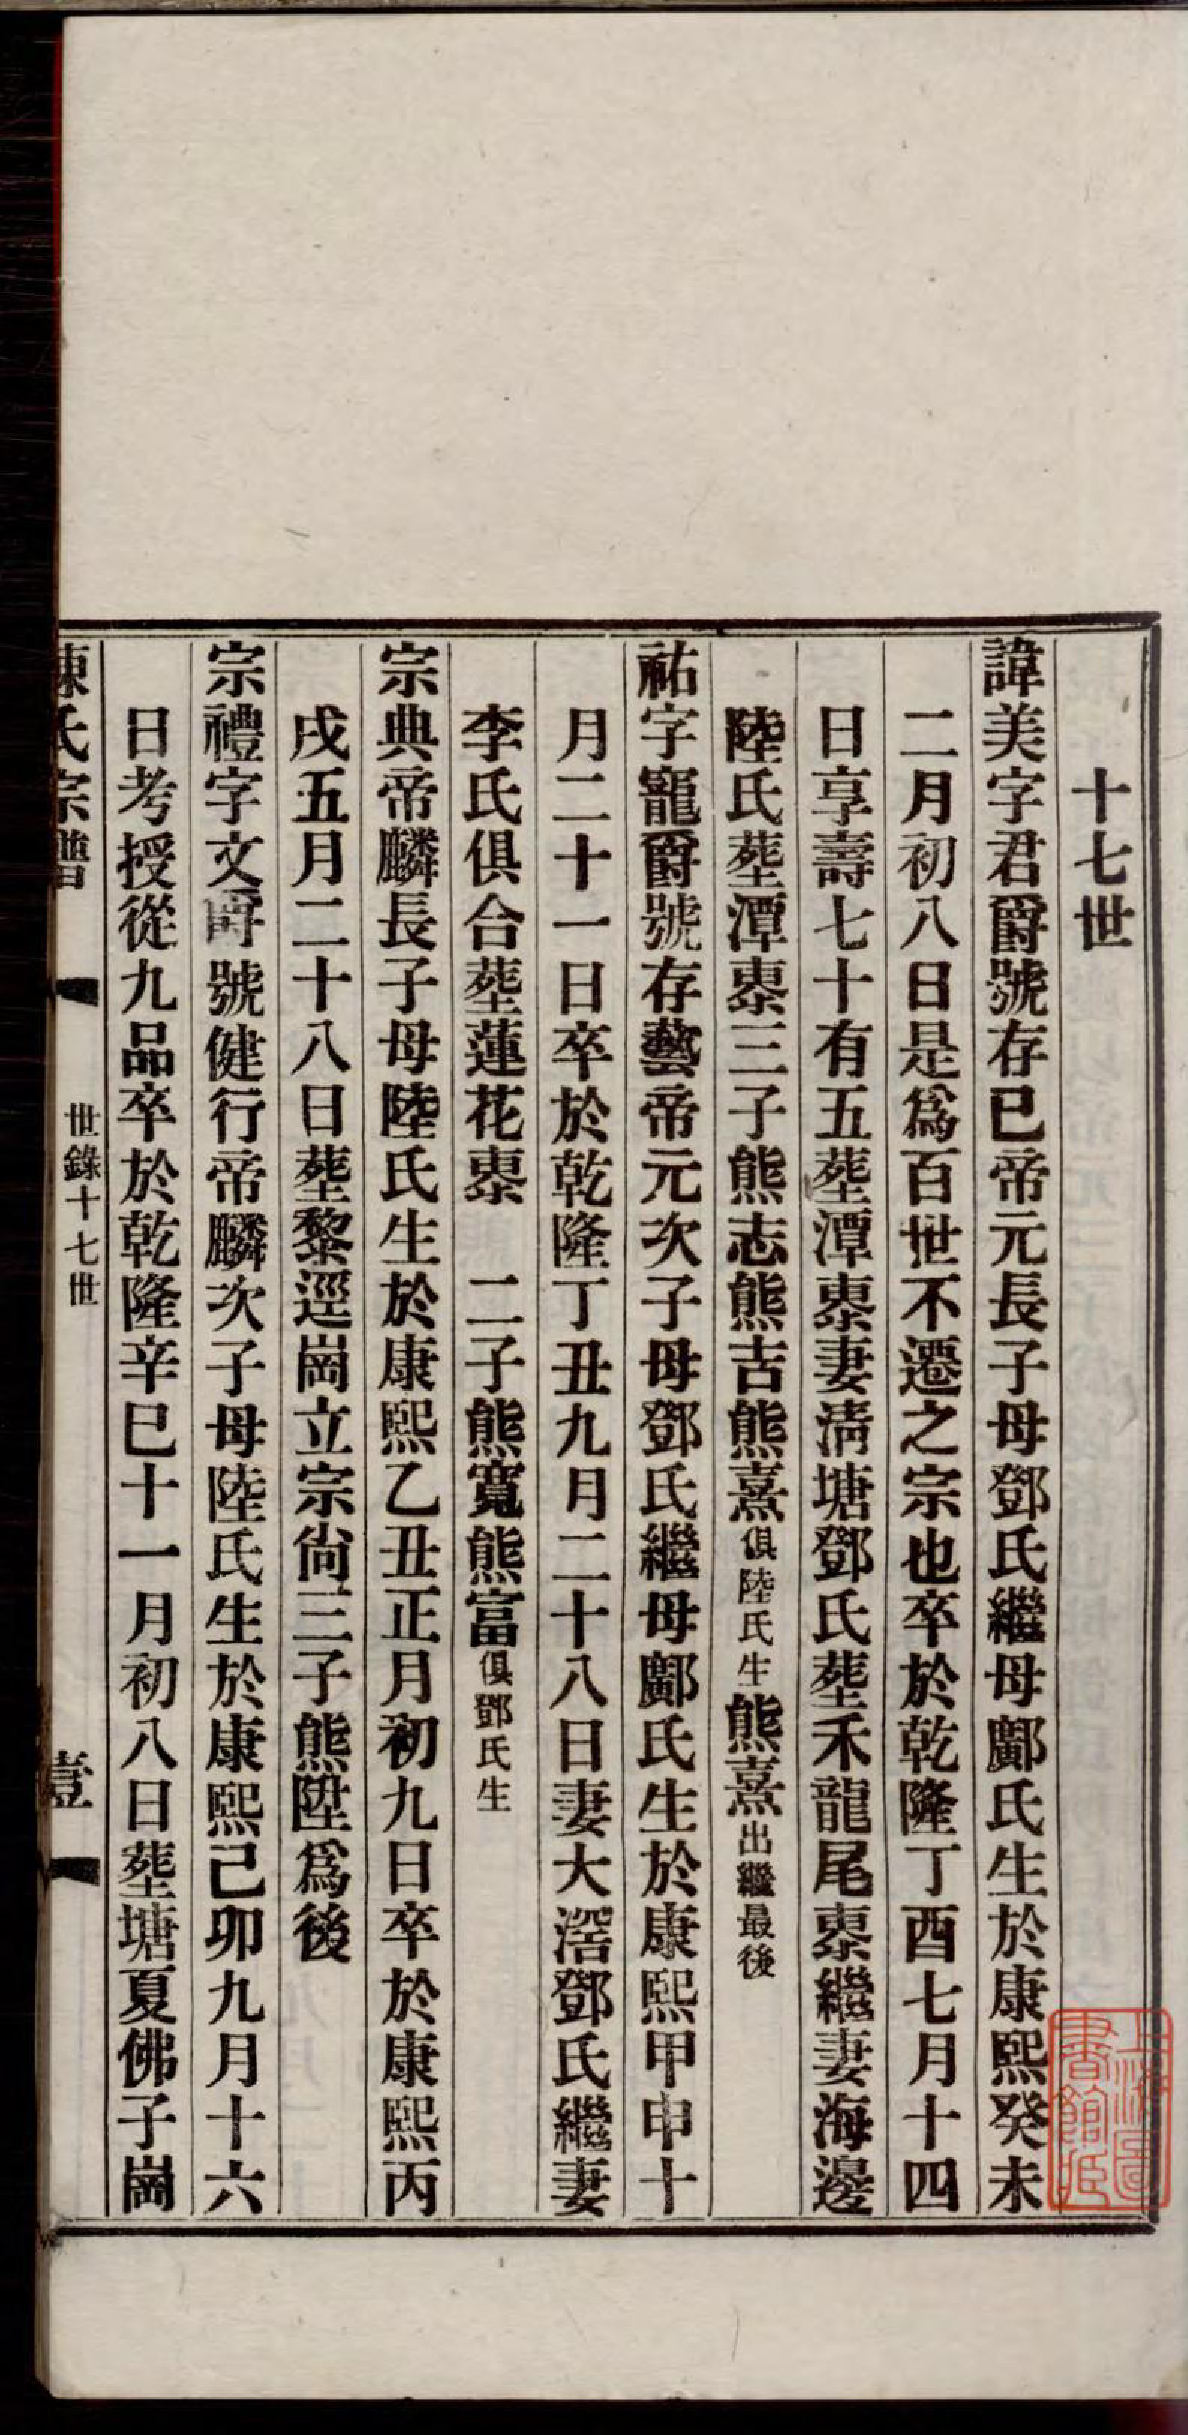 十七世
諱美字君爵號存已帝元長子母鄧氏繼母鄺氏生於康熙癸未
二月初八日是爲百世不遷之宗也卒於乾隆丁酉七月十四
日享壽七十有五塟潭㯥妻淸塘鄧氏塟禾龍尾㯥繼妻海邊
陸氏塟潭㯥三子熊志熊吉熊熹俱陸氏生熊熹出繼最後
祐字寵爵號存藝帝元次子母鄧氏繼母鄺氏生於康熙甲申十
月二十一日卒於乾隆丁丑九月二十八日妻大滘鄧氏繼妻
李氏俱合塟蓮花㯥 二子熊寬熊富俱鄧氏生
宗典帝麟長子母陸氏生於康熙乙丑正月初九日卒於康熙丙
戌五月二十八日塟黎逕崗立宗尙三子熊陞爲後
宗禮字文爵號健行帝麟次子母陸氏生於康熙己卯九月十六
日考授從九品卒於乾隆辛巳十一月初八日塟塘夏佛子崗
陳氏宗譜 世錄十七世 壹
上海圖書館藏